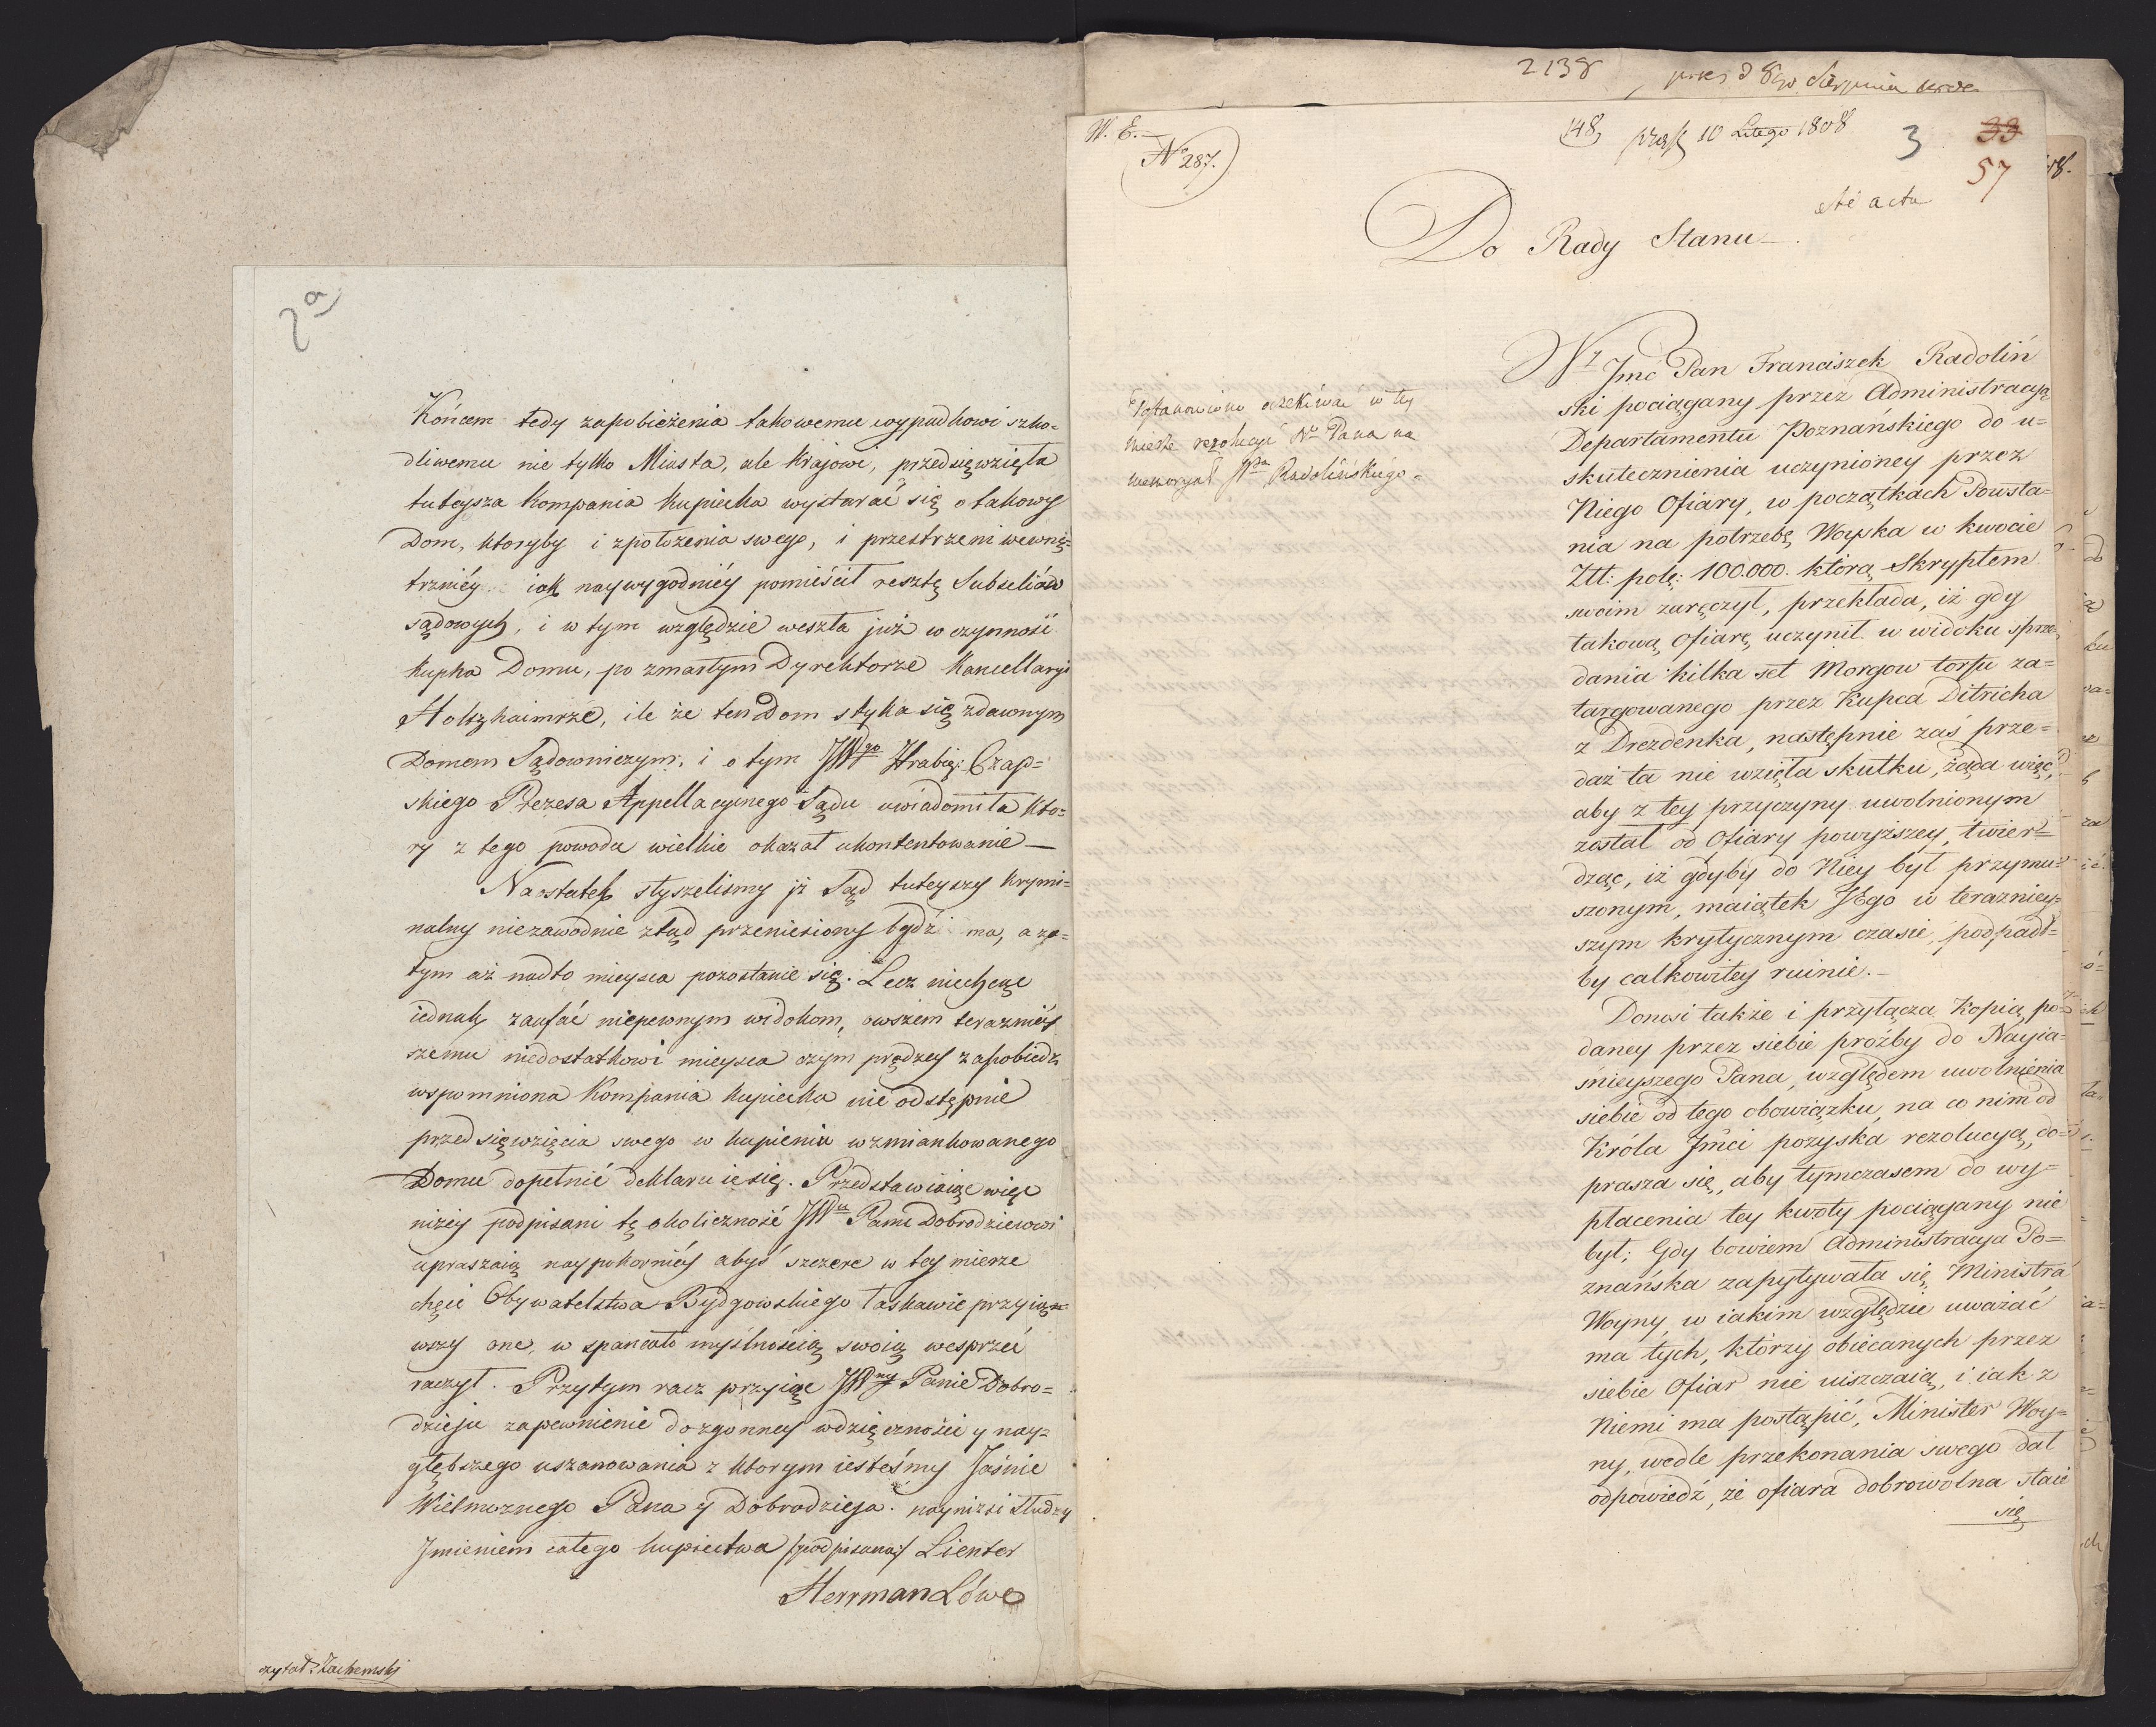 2a
Końcem tedy zapobieżenia takowemu wypadkowi szko=
dliwemu nie tylko Miasta, ale Krajowi, przedsięwzięła
tuteysza Kompania Kupiecka wystarać się o takowy
Dom, ktoryby i z położenia swego, i przestrzeni wewnę=
trzniéy iak naywygodniéy pomieścił resztę Subseliów
sądowych, i w tym względzie weszła już w czynność
Kupna Domu, po zmarłym Dyrektorze Kancellaryi
Holtzhaimrze, ile że ten Dom styka się z dawnym
Domem Sądowniczym, i o tym JWgo Hrabię Czap=
skiego Prezesa Appellacyinego Sądu uwiadomiła kto=
ry z tego powodu wielkie okazał ukontentowanie —
Naostatek słyszeliśmy iż Sąd tuteyszy Krymi=
nalny niezawodnie ztąd przeniesiony bydź ma, a za=
tym aż nadto mieysca pozostanie się. Lecz niechcąc
iednak zaufać niepewnym widokom, owszem terazniéy
szemu niedostatkowi mieysca czym prędzey zapobiedz
wspomniona Kompania Kupiecka nie odstępnie
przedsięwzięcia swego w kupieniu wzmiankowanego
Domu dopełnić deklaruie się. Przedstawiaiąc więc
niżey podpisani tę okoliczność JWu Panu Dobrodzieiowi
upraszaią naypokorniéy abyś szczere w tey mierze
chęci Obywatelstwa Bydgowskiego łaskawie przyiąw=
wszy one, wspaniało myślnością swoią wesprzeć
raczył. Przytym racz przyiąc JWny Panie Dobro=
dzieju zapewnienie dozgonney wdzięczności y nay=
głębszego uszanowania z ktorym iesteśmy Jaśnie
Wielmoznego Pana y Dobrodzieja. nayniżsi Słudzy
Jmieniem całego kupiectwa /:podpisano:/ Lienter
Herrman Löwe
czytał: Zachemski
2138
pres d 8go Sierpnia
W. E.
No 287.
148, præs 10 Lutego 1808
3
33
57
Ad acta
Do Rady Stanu
Postanowiono oczekiwać w tey
mierze rezolucyi Nr Pana na
memoryał JPa Radolińskiego.
Wz Jmc Pan Franciszek Radoliń
ski pociągany przez Administracyą
Departamentu Poznańskiego do u=
skutecznienia uczynioney przez
Niego Ofiary, w początkach Powsta=
nia na potrzebę Woyska w kwocie
Złł: polę: 100.000. którą Skryptem
swoim zaręczył, przekłada, iż gdy
takową Ofiarę uczynił w widoku sprze=
dania kilka set Morgow torfu za=
targowanego przez Kupca Ditricha
z Drezdenka, następnie zaś prze=
daż ta nie wzięła skutku, żąda więc,
aby z tey przyczyny uwolnionym
został od Ofiary powyższey, twier=
dząc, iż gdyby do Niey był przymu=
szonym, maiątek JEgo w teraźniey=
szym krytycznym czasie, podpadł=
by całkowitey ruinie.
Donosi także i przyłącza Kopią, po=
daney przez siebie próźby do Nayia=
śnieyszego Pana, względem uwolnienia
siebie od tego obowiązku, na co nim od
Króla Jmci pozyska rezolucyą, do=
prasza się, aby tymczasem do wy=
płacenia tey kwoty pociągany nie
był; Gdy bowiem Administracya Po=
znańska zapytywała się Ministra
Woyny, w iakim względzie uważać
ma tych, którzy obiecanych przez
siebie Ofiar nie uiszczaią, i iak z
Niemi ma postąpić, Minister Woy=
ny, wedle przekonania swego dał
odpowiedź, że ofiara dobrowolna staie
się